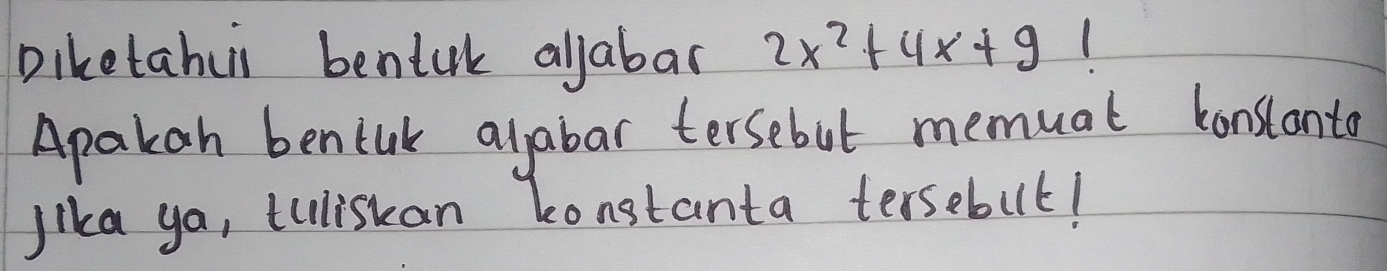 Diketahui bentuk aljabar 2x²+4x+9 !
Apakah bentuk aljabar tersebut memuat konstanta
jika ya, tuliskan konstanta tersebut!